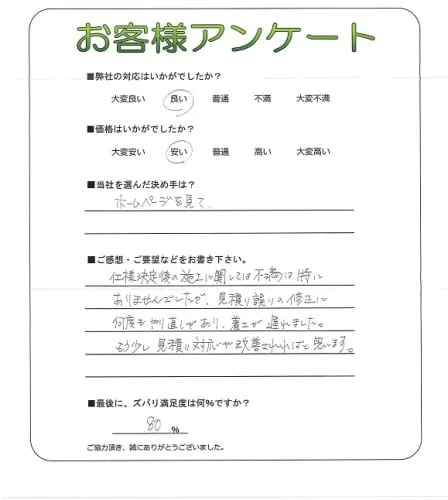 お客様アンケート
■弊社の対応はいかがでしたか？
大変良い 良い 普通 不満 大変不満
■価格はいかがでしたか？
大変安い 安い 普通 高い 大変高い
■当社を選んだ決め手は？
ホームページを見て、
■ご感想・ご要望などをお書き下さい。
仕様決定後の施工に関しては不満は特に
ありませんでしたが、見積り誤りの修正に
何度もやり直しがあり、着工が遅れました。
もう少し見積り対応が改善されればと思います。
■最後に、ズバリ満足度は何%ですか？
80 %
ご協力頂き、誠にありがとうございました。